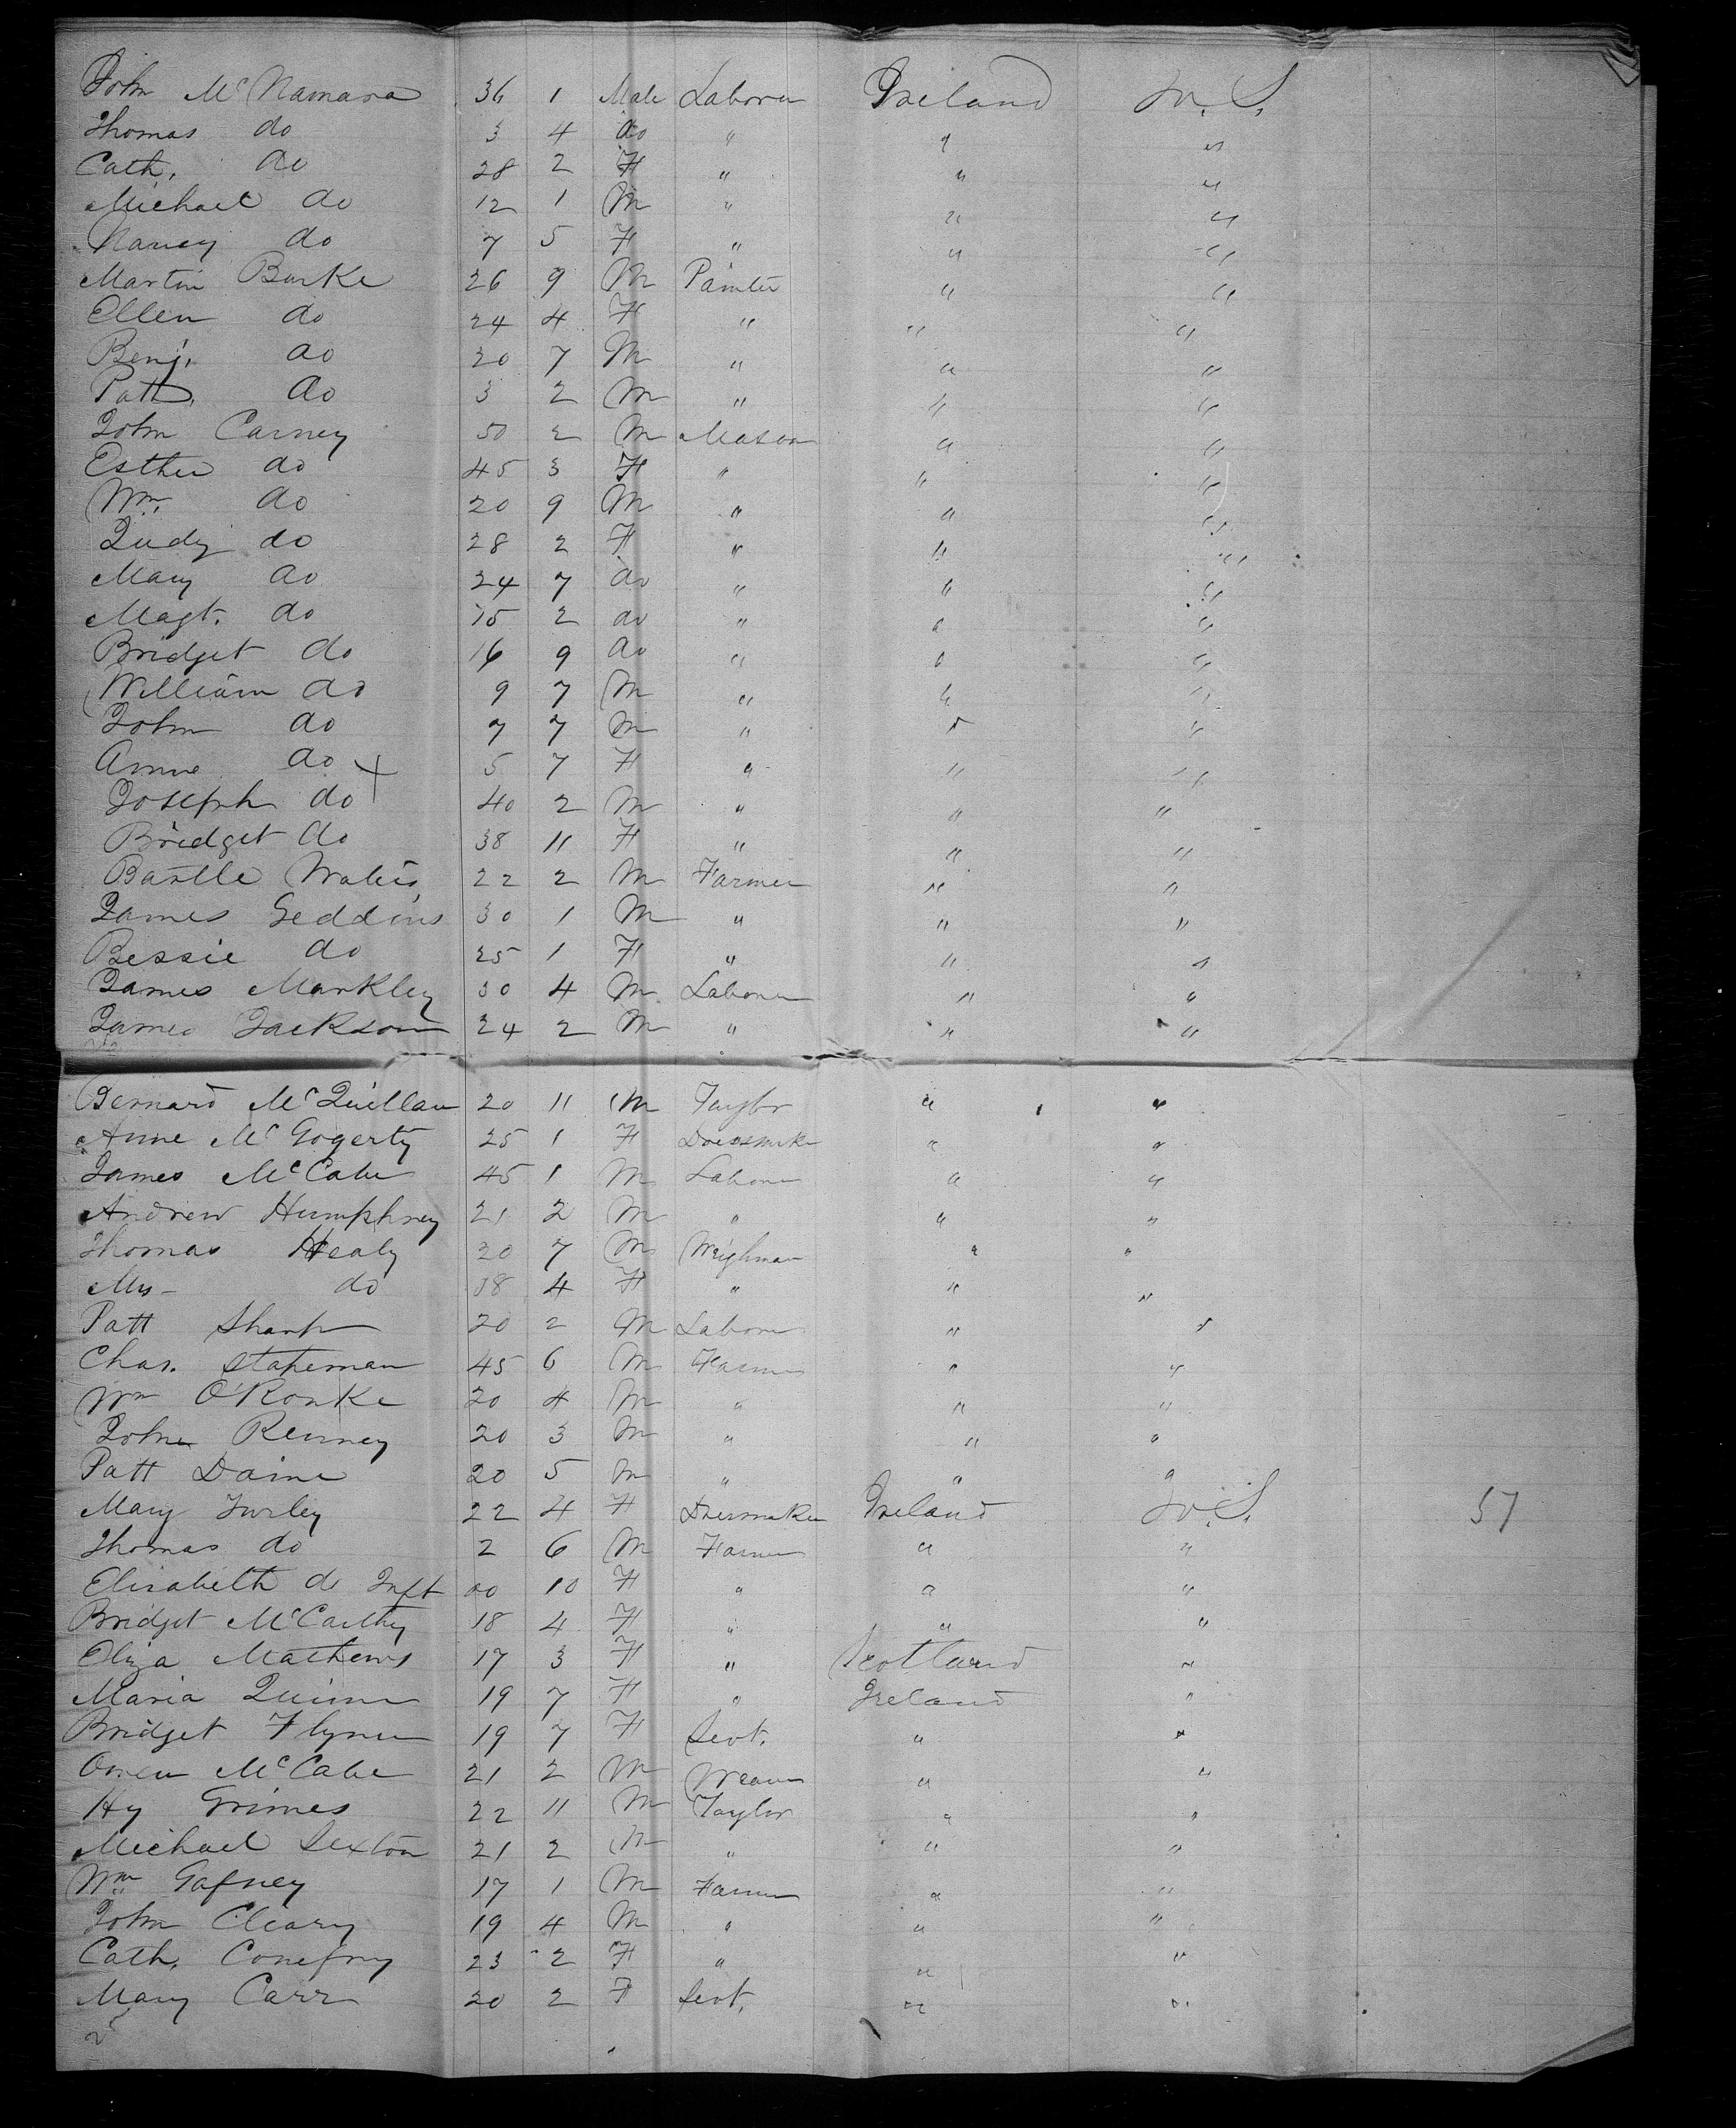 John McNamara 36 1 Male Laborer Ireland U.S.
Thomas do 3 4 do " " "
Cath. do 28 2 F " " "
Michael do 12 1 M " " "
Nancy do 7 5 F " " "
Martin Burke 26 9 M Painter " "
Ellen do 24 4 F " " "
Benj. do 20 7 M " " "
Patt. do 3 2 M " " "
John Carney 50 2 M Mason " "
Esther do 45 3 F " " "
Wm. do 20 9 M " " "
Judy do 28 2 F " " "
Mary do 24 7 do " " "
Magt. do 15 2 do " " "
Bridget do 16 9 do " " "
William do 9 7 M " " "
John do 7 7 M " " "
Anne do + 5 7 F " " "
Joseph do 40 2 M " " "
Bridget do 38 11 F " " "
Bartle 22 2 M Farmer " "
James Geddins 30 1 M " " "
Bessie do 25 1 F " " "
James Markley 30 4 M Laborer " "
James Jackson 24 2 M " " "
Bernard McQuillan 20 11 M Taylor " "
Anne McGogerty 25 1 F Dressmkr " "
James McCabe 45 1 M Laborer " "
Andrew Humphrey 21 2 M " " "
Thomas Healy 20 7 M Weighman " "
Mrs - do 18 4 F " " "
Patt Sharp 20 2 M Laborer " "
Chas. Stapeman 45 6 M Farmer " "
Wm O'Ronke 20 4 M " " "
John Renney 20 3 M " " "
Patt Daine 20 5 M " " "
Mary Turley 22 4 F Dressmaker Ireland U.S. 57
Thomas do 2 6 M Farmer " "
Elizabeth do Inft 00 10 F " " "
Bridget McCarthy 18 4 F " " "
Eliza Mathews 17 3 F " Scotland "
Maria Quinn 19 7 F " Ireland "
Bridget Flynn 19 7 F Servt. " "
Owen McCabe 21 2 M Weaver " "
Hy Grimes 22 11 M Taylor " "
Michael Sexton 21 2 M " " "
Wm Gafney 17 1 M Farmer " "
John Cleary 19 4 M " " "
Cath. Conefry 23 2 F " " "
Mary Carr 20 2 F Servt. " "